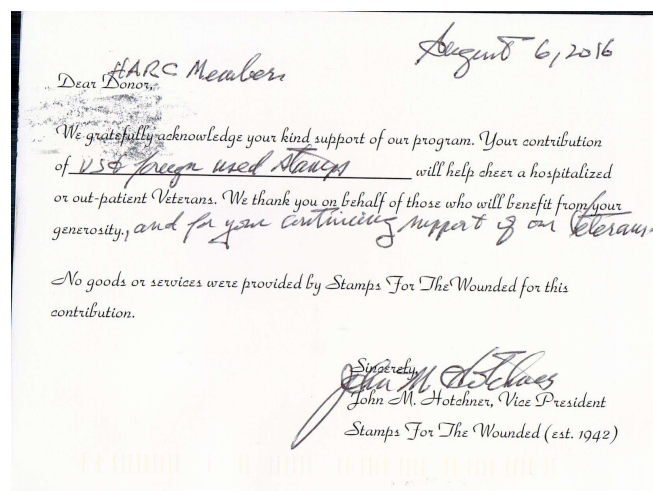 August 6, 2016
HARC Members
Dear Donor,
We gratefully acknowledge your kind support of our program. Your contribution
of US & foreign used stamps will help cheer a hospitalized
or out-patient Veterans. We thank you on behalf of those who will benefit from your
generosity., and for your continuing support of our Veterans
No goods or services were provided by Stamps For The Wounded for this
contribution.
Sincerely,
John M. Hotchner
John M. Hotchner, Vice President
Stamps For The Wounded (est. 1942)